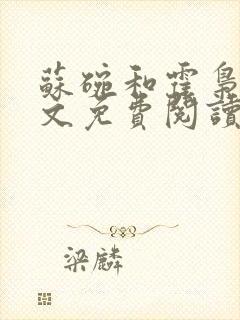 蘇碗和霆梟
文免費閱讀
梁麟